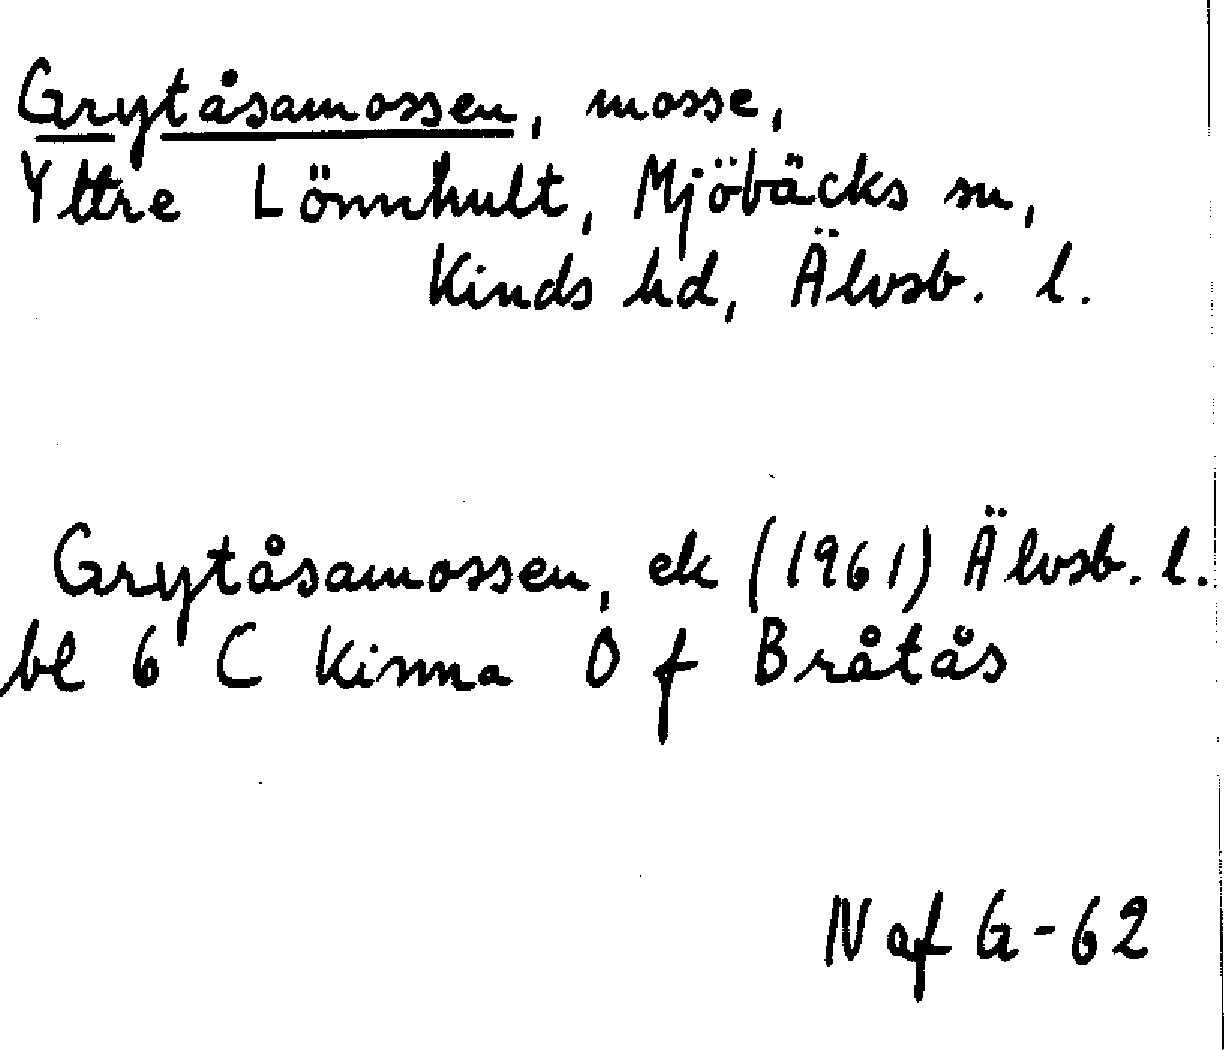 Grytåsamossen, mosse,
Yttre Lönnhult, Mjöbäcks sn,
Kinds hd, Älvsb. l.
Grytåsamossen, ek (1961) Älvsb. l.
bl 6 C Kinna Ö f Bråtås
N af G-62